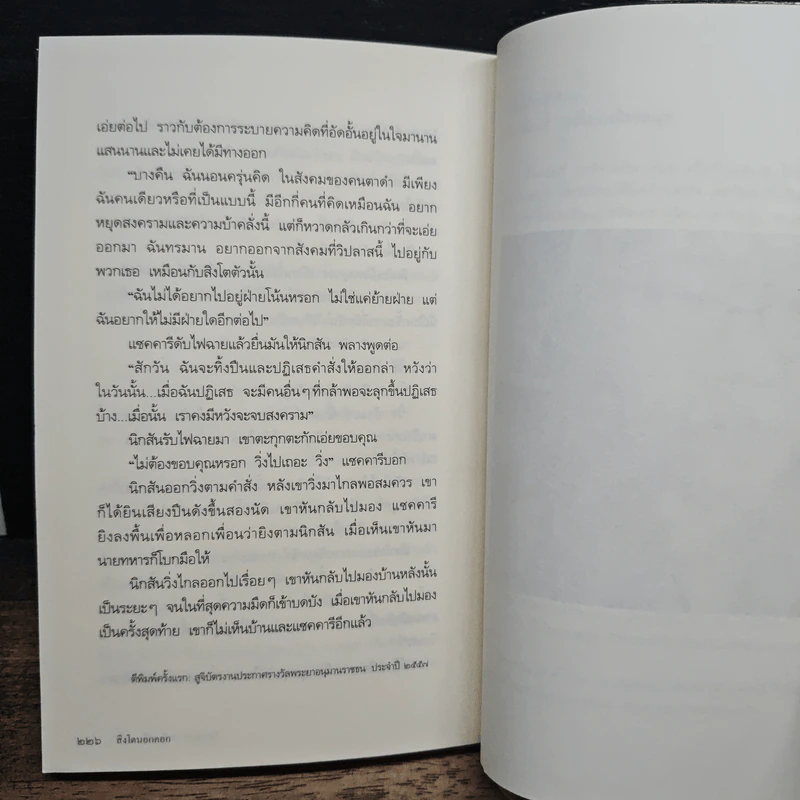 เอ่ยต่อไป ราวกับต้องการระบายความคิดที่อัดอั้นอยู่ในใจมานาน
แสนนานและไม่เคยได้มีทางออก
“บางคืน ฉันนอนครุ่นคิด ในสังคมของคนตาดำ มีเพียง
ฉันคนเดียวหรือที่เป็นแบบนี้ มีอีกกี่คนที่คิดเหมือนฉัน อยาก
หยุดสงครามและความบ้าคลั่งนี้ แต่ก็หวาดกลัวเกินกว่าที่จะเอ่ย
ออกมา ฉันทรมาน อยากออกจากสังคมที่วิปลาสนี้ ไปอยู่กับ
พวกเธอ เหมือนกับสิงโตตัวนั้น
“ฉันไม่ได้อยากไปอยู่ฝ่ายโน้นหรอก ไม่ใช่แค่ย้ายฝ่าย แต่
ฉันอยากให้ไม่มีฝ่ายใดอีกต่อไป”
แซคคารีดับไฟฉายแล้วยื่นมันให้นิกสัน พลางพูดต่อ
“สักวัน ฉันจะทิ้งปืนและปฏิเสธคำสั่งให้ออกล่า หวังว่า
ในวันนั้น...เมื่อฉันปฏิเสธ จะมีคนอื่นๆ ที่กล้าพอจะลุกขึ้นปฏิเสธ
บ้าง...เมื่อนั้น เราคงมีหวังจะจบสงคราม”
นิกสันรับไฟฉายมา เขาตะกุกตะกักเอ่ยขอบคุณ
“ไม่ต้องขอบคุณหรอก วิ่งไปเถอะ วิ่ง” แซคคารีบอก
นิกสันออกวิ่งตามคำสั่ง หลังเขาวิ่งมาไกลพอสมควร เขา
ก็ได้ยินเสียงปืนดังขึ้นสองนัด เขาหันกลับไปมอง แซคคารี
ยิงลงพื้นเพื่อหลอกเพื่อนว่ายิงตามนิกสัน เมื่อเห็นเขาหันมา
นายทหารก็โบกมือให้
นิกสันวิ่งไกลออกไปเรื่อยๆ เขาหันกลับไปมองบ้านหลังนั้น
เป็นระยะๆ จนในที่สุดความมืดก็เข้าบดบัง เมื่อเขาหันกลับไปมอง
เป็นครั้งสุดท้าย เขาก็ไม่เห็นบ้านและแซคคารีอีกแล้ว
ตีพิมพ์ครั้งแรก: สูจิบัตรงานประกาศรางวัลพระยาอนุมานราชธน ประจำปี ๒๕๕๗
๒๒๖ สิงโตนอกคอก